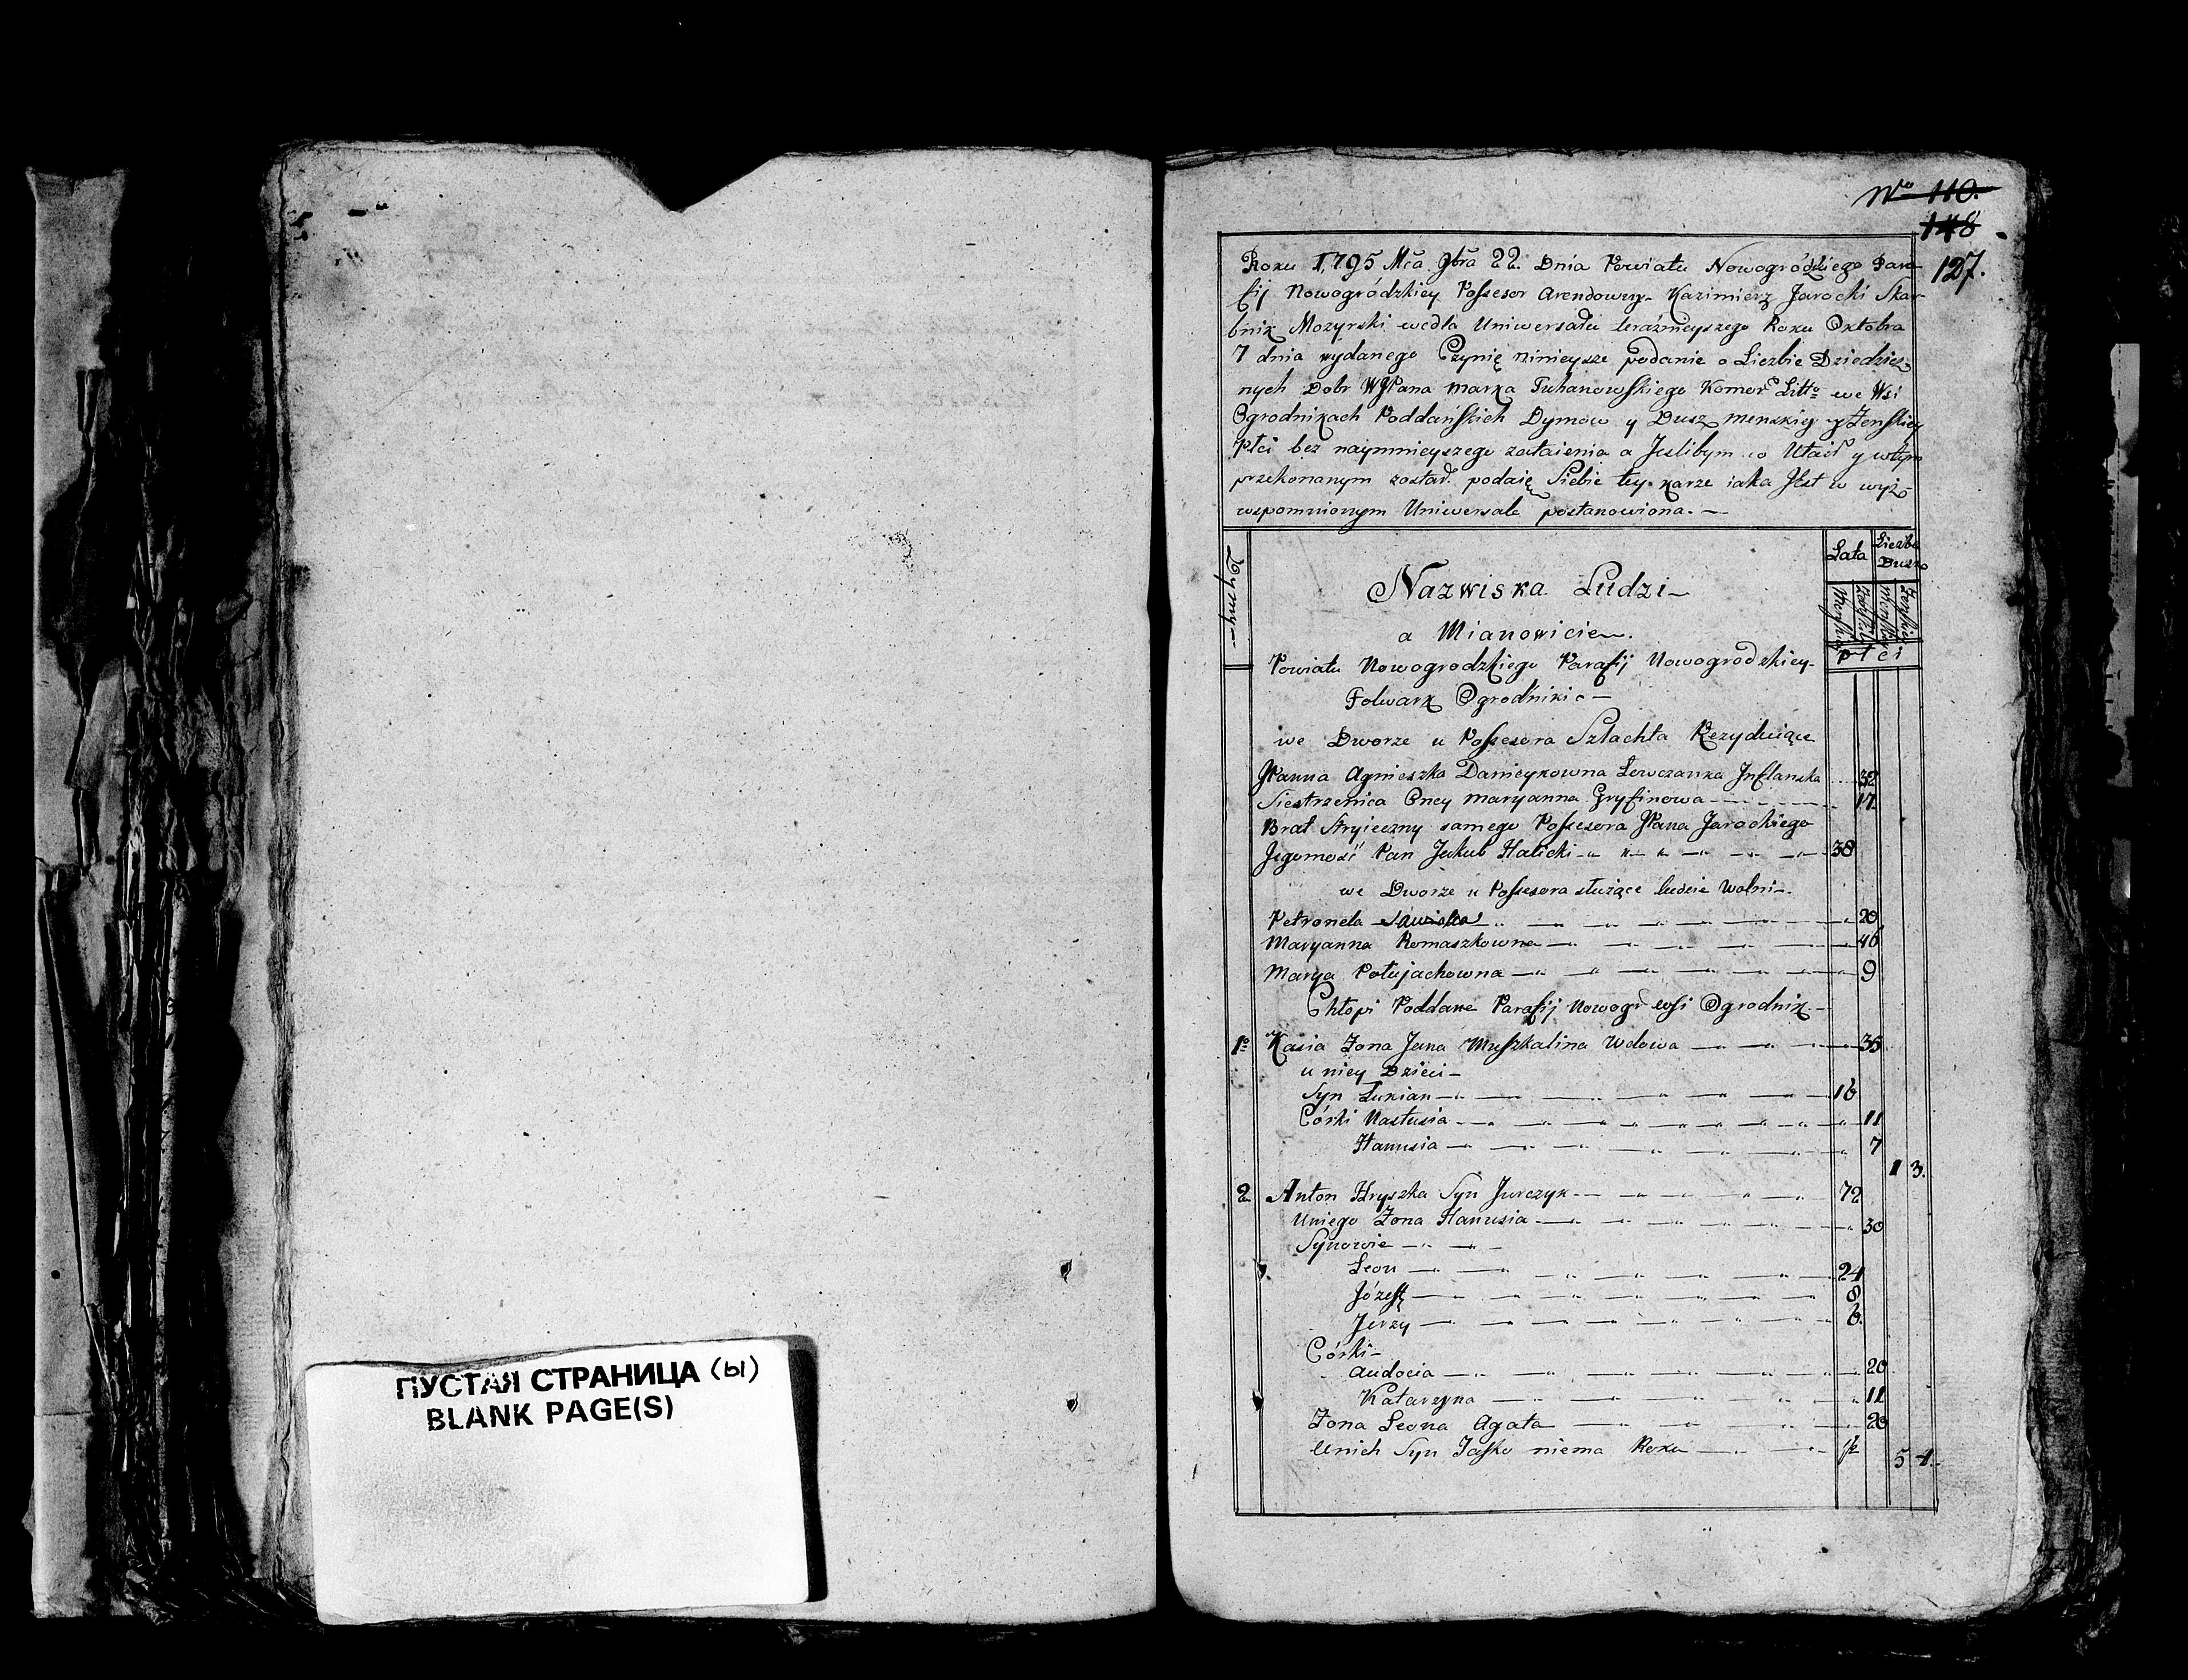 ПУСТАЯ СТРАНИЦА (ы)
BLANK PAGE(S)
No 110.
148
127.
Roku 1795 Mca 9bra 22. Dnia Powiatu Nowogródzkiego Para
fij Nowogródzkiey Possesor Arendowny Kazimierz Jarocki Skar
bnik Mozyrski wedla Uniwersału teraźnieyszego Roku Oktobra
7 dnia wydanego Czynię ninieysze podanie o Liczbie Dziedzicz
nych Dobr WJPana Marka Tuhanowskiego Komor Litto we Wsi
Ogrodnikach Poddańskich Dymow y Dusz Menskiey y Żenskiey
Płci bez naymnieyszego zataienia a Jeslibym co Utaił y wtym
przekonanym został. podaię Siebie tey karze iaka Jest w wyż
wspomnionym Uniwersale postanowiona. —
Dymy —
Nazwiska Ludzi —
a Mianowicie.
Lata
Liczba Dusz
Męskiey Żeńskiey Męskiey Żeńskiey
płci
Powiatu Nowogrodzkiego Parafij Nowogrodzkiey
Folwark Ogrodniki —
we Dworze u Possesora Szlachta Rezyduiące
JPanna Agnieszka Danieykowna Lowczanka Inflanska 32
Siestrzenica Oney Maryanna Gryfinowa 17
Brat Stryieczny samego Possesora JPana Jarockiego
Jegomość Pan Jakub Halicki 38
we Dworze u Possesora służące ludzie Wolni —
Petronela 20
Maryanna Romaszkowna 46
Marya Połujachowna 9
Chłopi Poddane Parafij Nowogr wsi Ogrodnik —
1o Kasia Żona Jana Muszkalina Wdowa 35
u niey Dzieci —
Syn Łukian 16
Córki Nastusia 11
Hanusia 7
1 3.
2 Anton Hryszka Syn Jurczyk 72
Uniego Żona Hanusia 30
Synowie
Leon 24
Józef 8
Jerzy 6.
Córki —
Audocia 20
Katarzyna 11
Żona Leona Agata 20
Unich Syn Jaśko niema Roku 1/2
5 4.